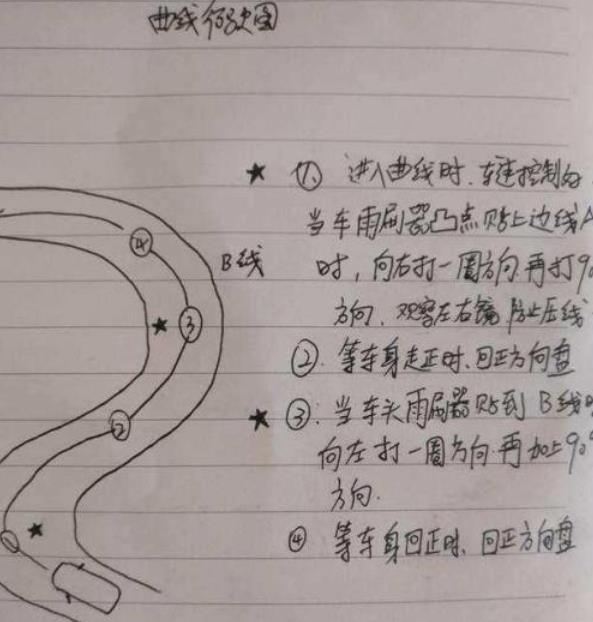 曲线行驶图
★ ①、进入曲线时.车速控制好
当车雨刷器凸点贴上边线A
时，向右打一圈方向再打90
方向.观察左右镜防止压线
B线
②.等车身走正时.回正方向盘
★ ③:当车头雨刷器贴到B线时
向左打一圈方向.再加上90°
方向.
④ 等车身回正时、回正方向盘
④
★ ③
②
① ★